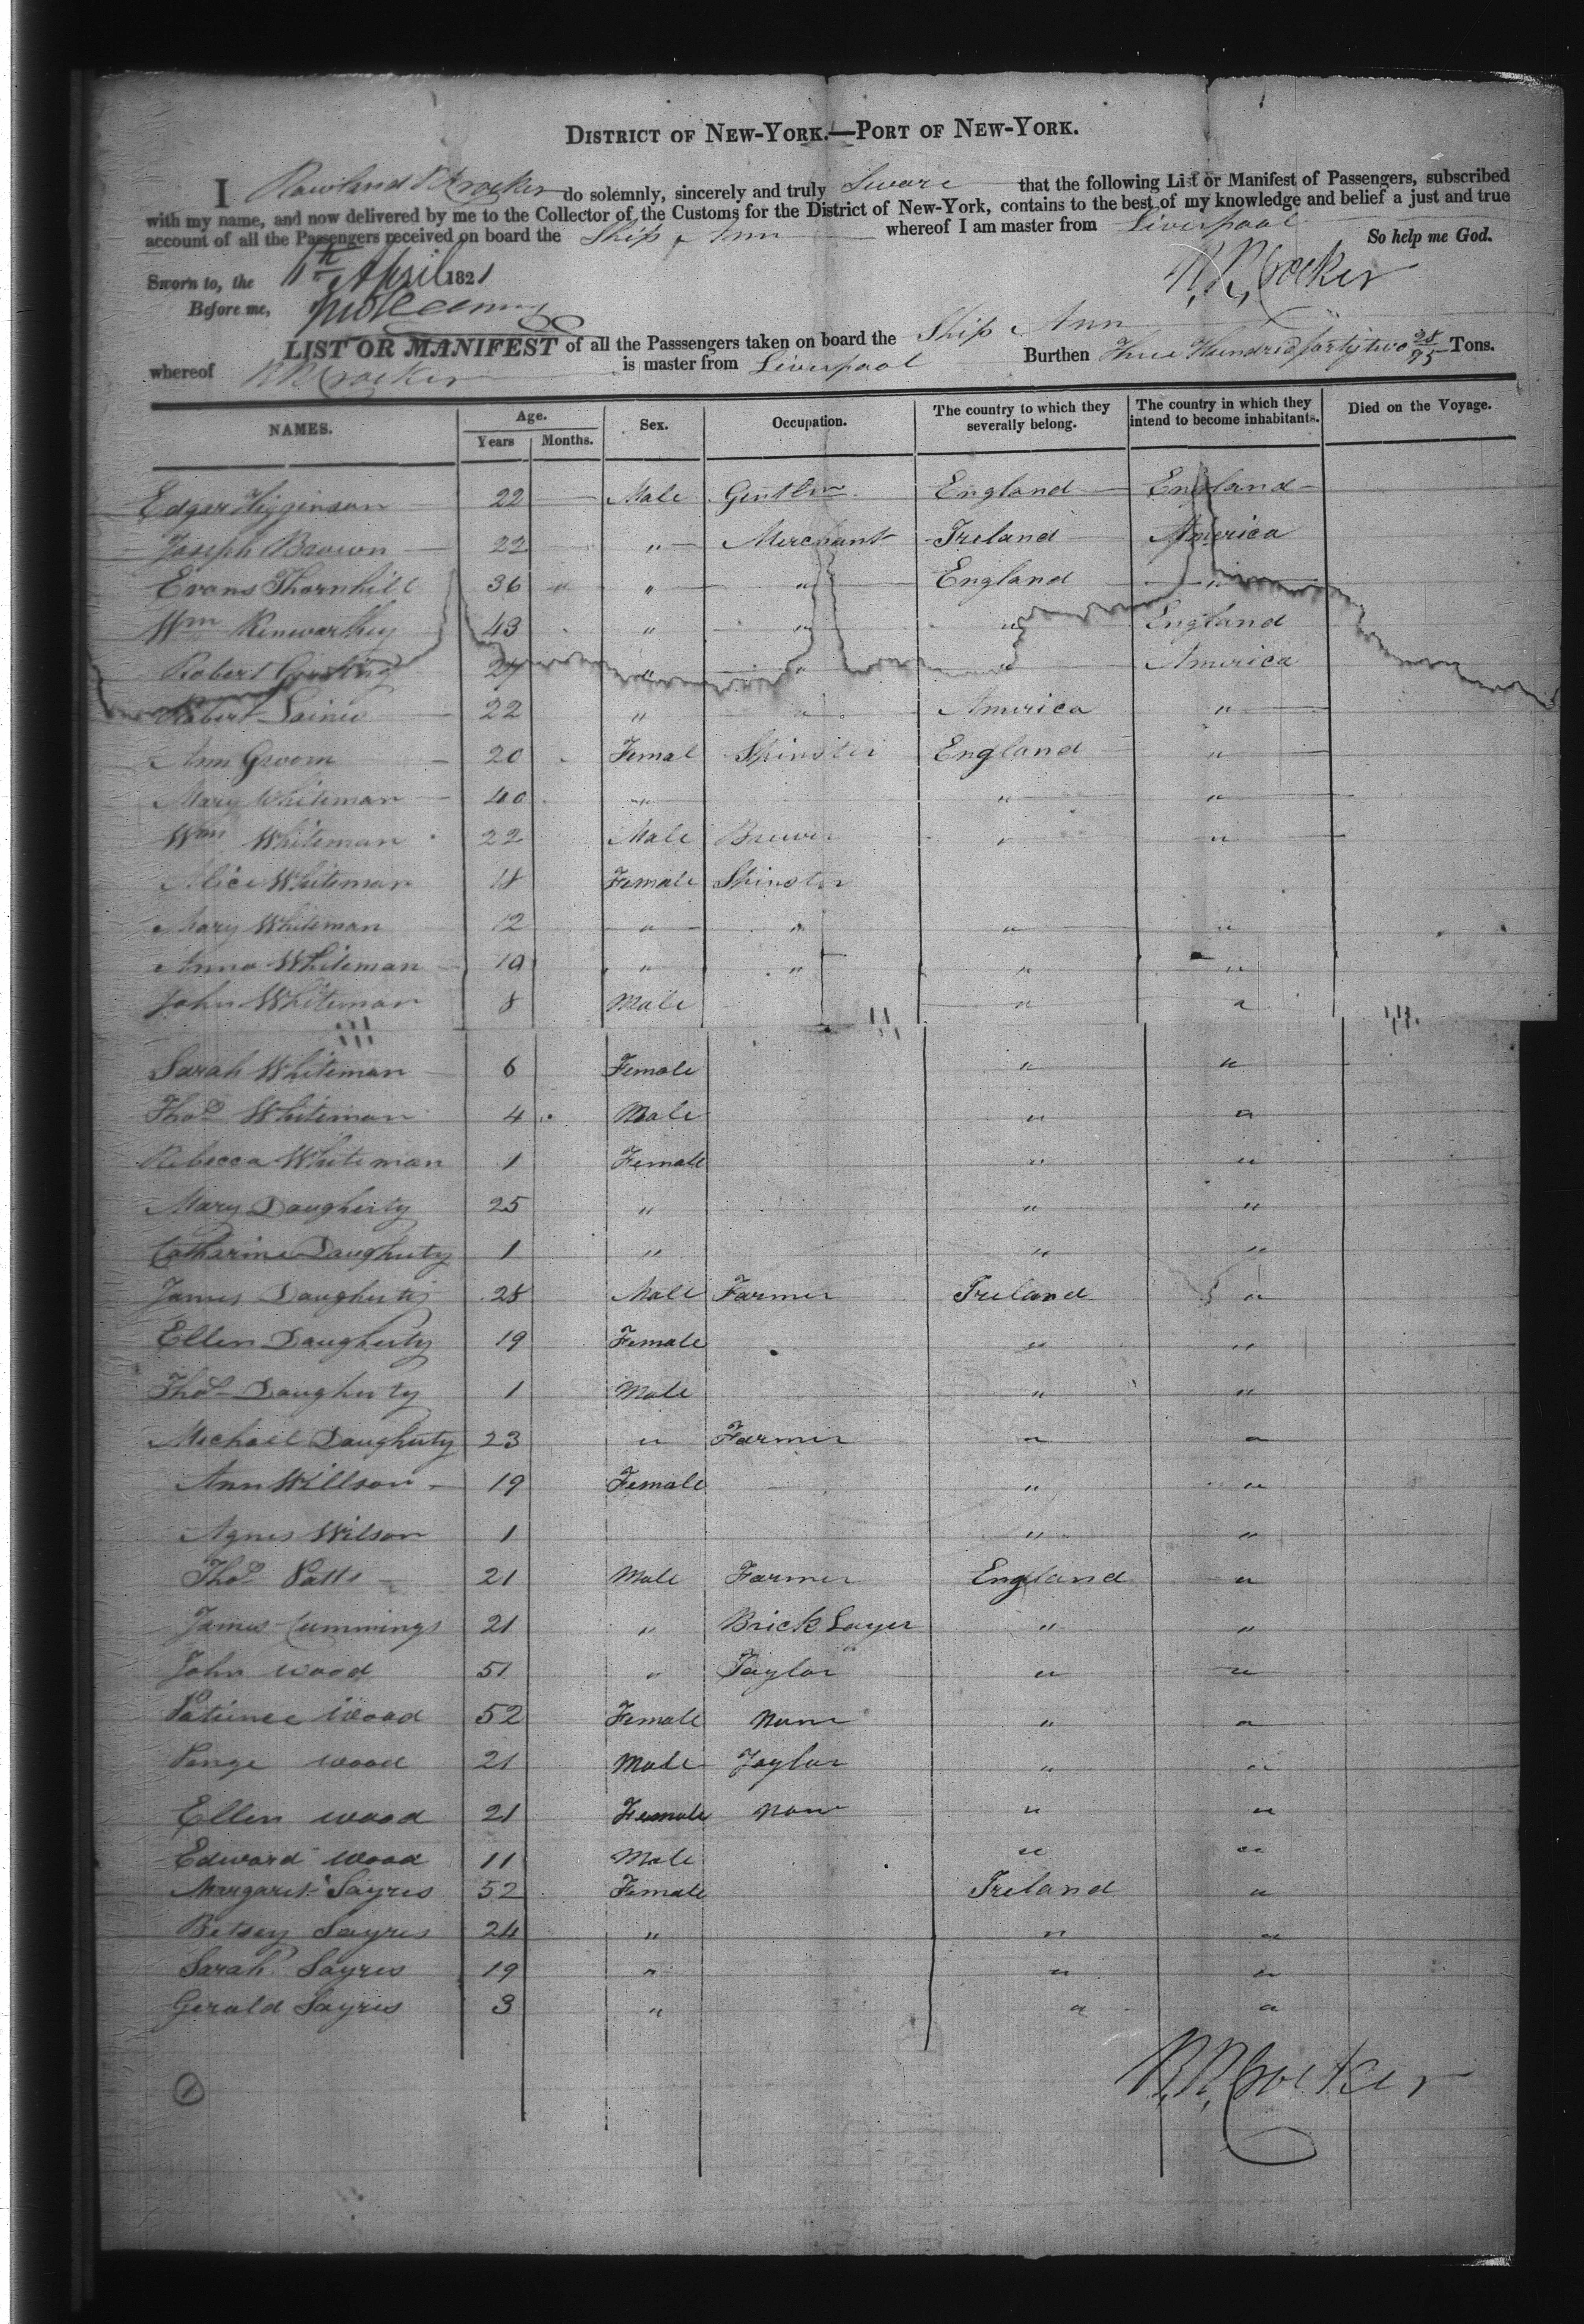 DISTRICT OF NEW-YORK.—PORT OF NEW-YORK.
I Rowland R Crocker do solemnly, sincerely and truly Sware that the following List or Manifest of Passengers, subscribed
with my name, and now delivered by me to the Collector of the Customs for the District of New-York, contains to the best of my knowledge and belief a just and true
account of all the Passengers received on board the Ship Ann whereof I am master from Liverpool So help me God.
Sworn to, the April 1821 R. R. Crocker
Before me,
LIST OR MANIFEST of all the Passsengers taken on board the Ship Ann
whereof R R Crocker is master from Liverpool Burthen Three Hundred forty two 28/95 Tons.
NAMES. Age. Years Months. Sex. Occupation. The country to which they severally belong. The country in which they intend to become inhabitants. Died on the Voyage.
Edgar Higginson 22 Male Gentlm England England
Joseph Brown 22 " Merchant Ireland America
Evans Thornhill 36 " " " England "
Wm 43 " " " England
Robert 27 " " " America
Robert 22 " " America "
Ann Groom 20 Femal Spinster England "
Mary Whiteman 40 " " "
Wm Whiteman 22 Male Brewer " "
Alice Whiteman 18 Female Spinster
Mary Whiteman 12 " " " "
Anna Whiteman 10 " " " "
John Whiteman 8 Male " "
Sarah Whiteman 6 Female " "
Thos Whiteman 4 Male " "
Rebecca Whiteman 1 Female " "
Mary Daugherty 25 " " "
Catharine Daugherty 1 " " "
James Daugherty 28 Male Farmer Ireland "
Ellen Daugherty 19 Female " "
Thos Daugherty 1 Male " "
Michael Daugherty 23 " Farmer " "
Ann Willson 19 Female " "
Agnes Wilson 1 " "
Thos Potts 21 Male Farmer England "
James Cummings 21 " Brick Layer " "
John Wood 51 " Taylor " "
Patience Wood 52 Female None " "
wood 21 Male Taylor " "
Ellen wood 21 Female None " "
Edward Wood 11 Male " "
Margaret Sayres 52 Female Ireland "
Betsey Sayres 24 " " "
Sarah Sayres 19 " " "
Gerald Sayres 3 " " "
R. R. Crocker
1